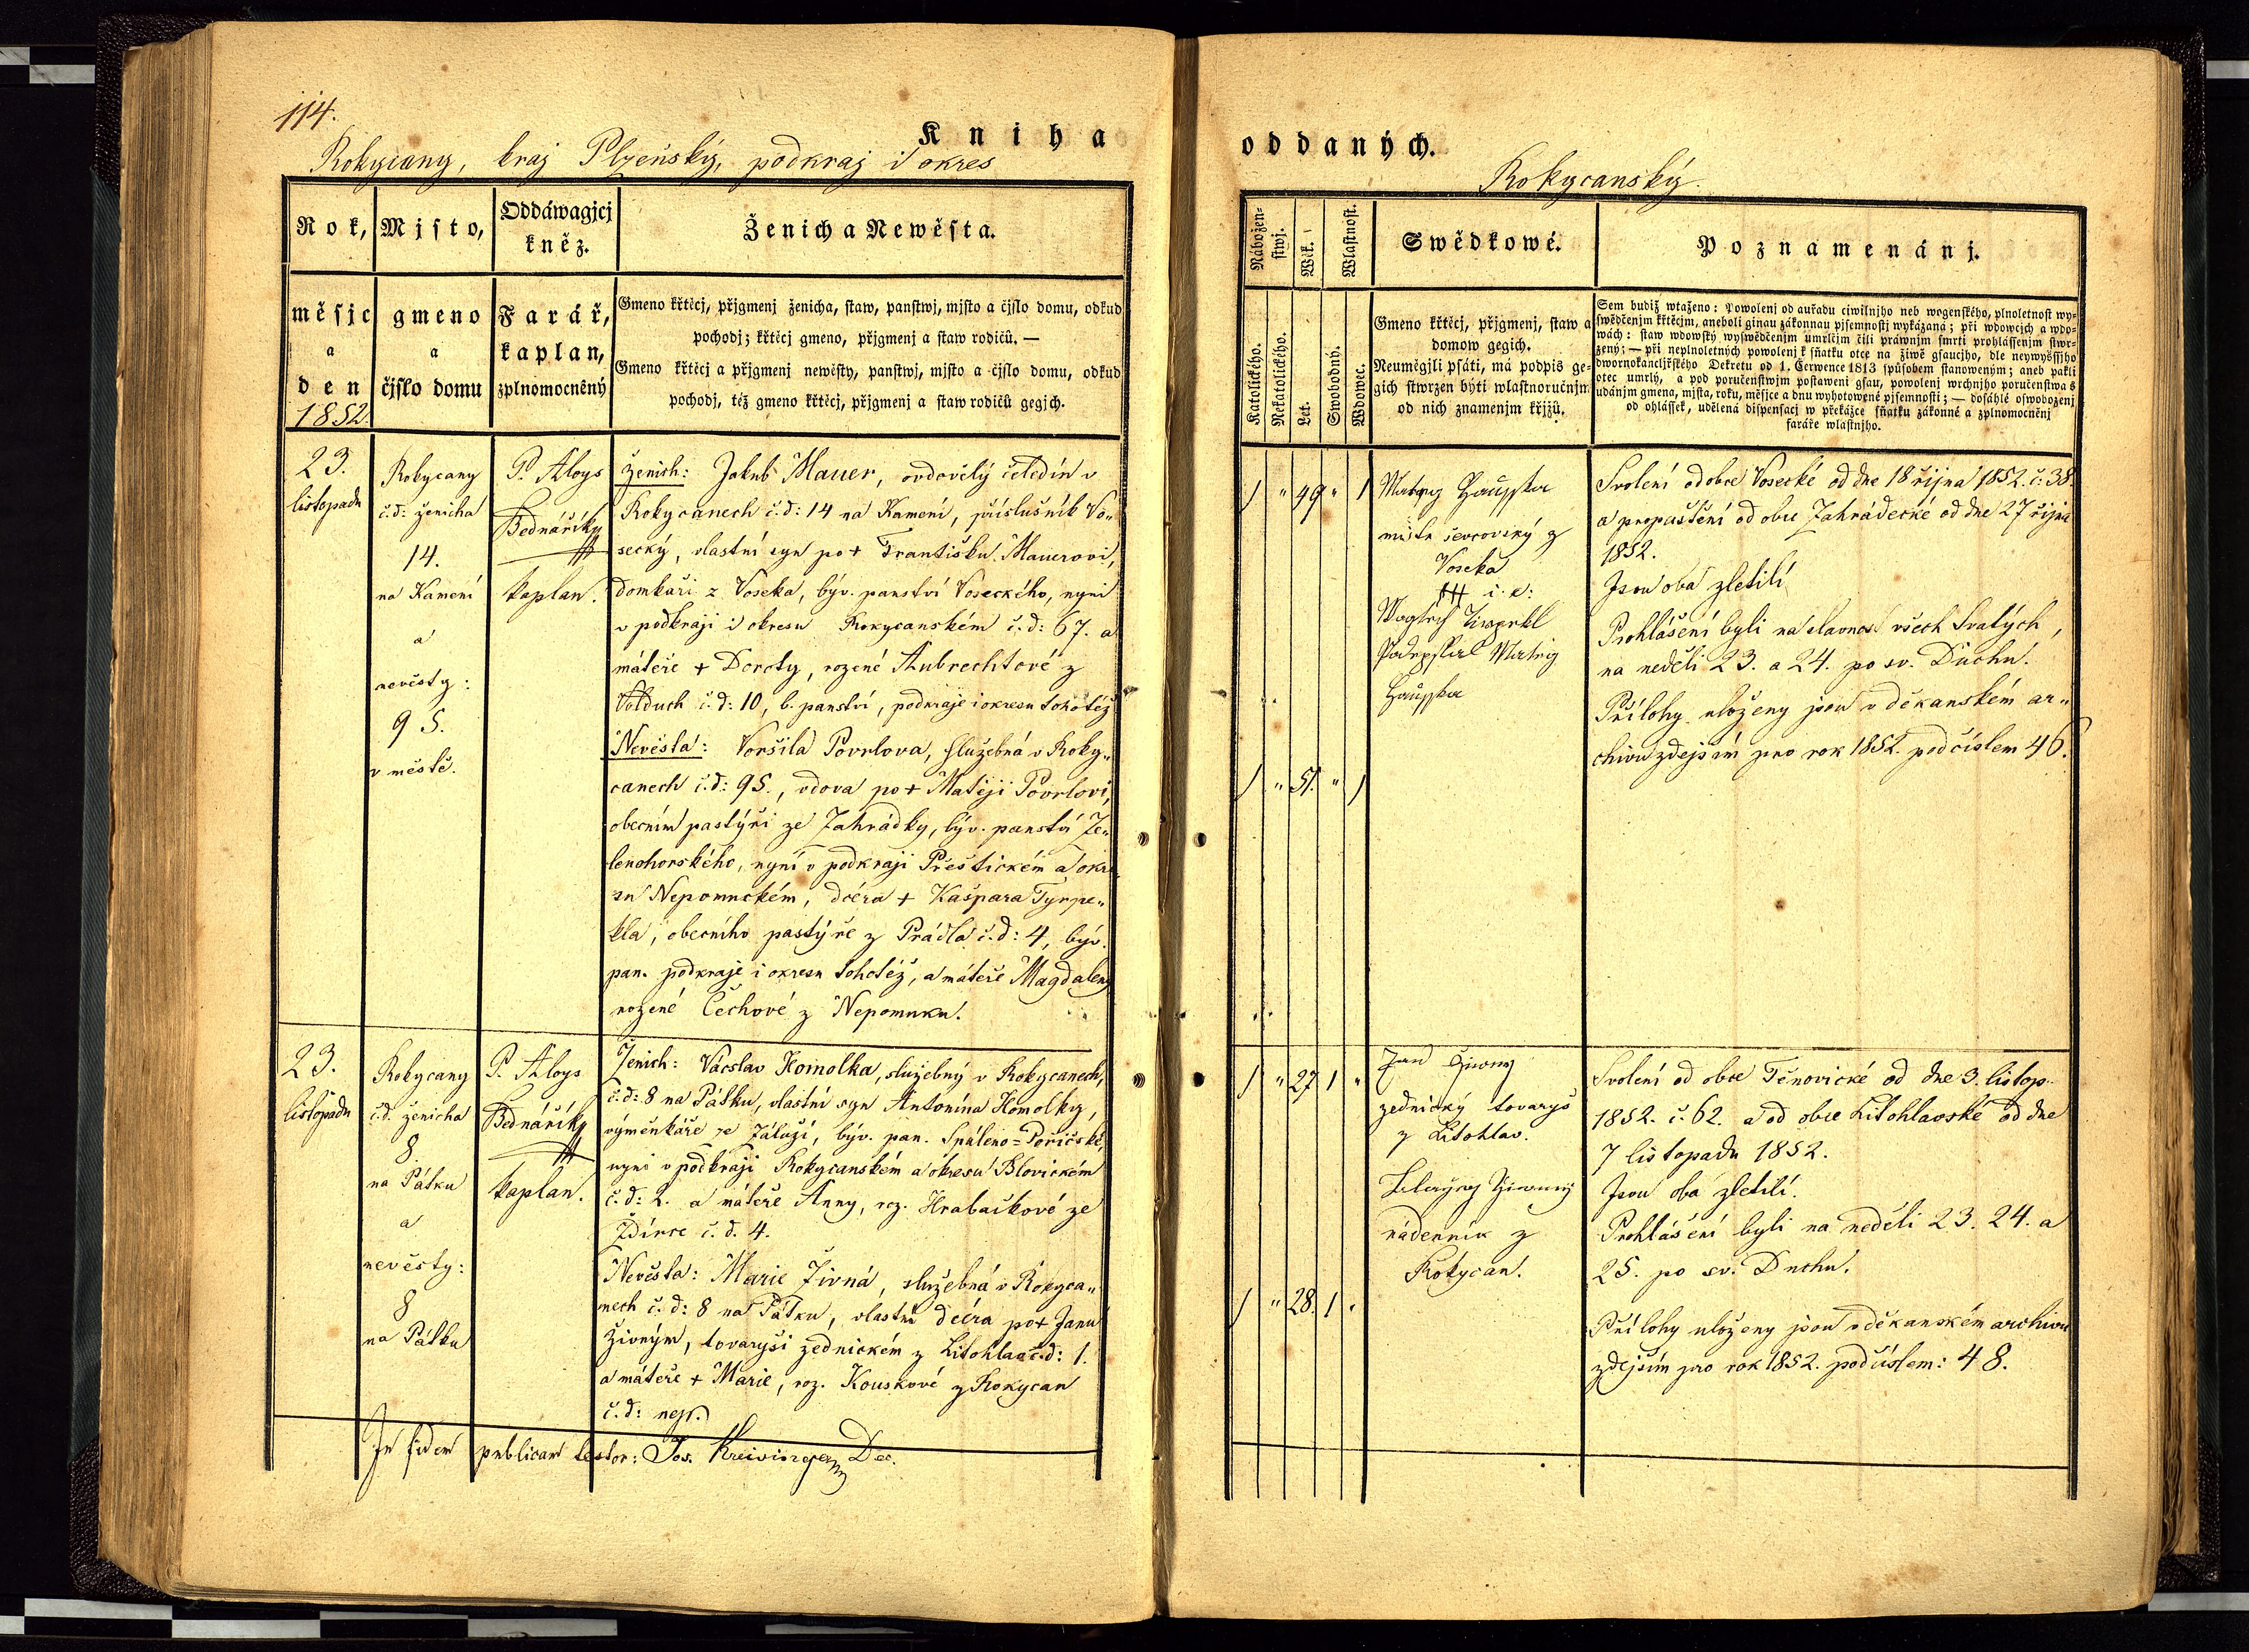 114.
Kniha
Rokycany, kraj Plzeňský, podkraj i okres
Rok,
měsjc
a
den
1852.
Mjsto,
gmeno
a
čjslo domu
Oddáwagjcj
kněz.
Farář,
kaplan,
zplnomocněný
Ženich a Newěsta.
Gmeno křtěcj, přjgmenj ženicha, staw, panstwj, mjsto a čjslo domu, odkud
pochodj; křtěcj gmeno, přjgmenj a staw rodičů. —
Gmeno křtěcj a přjgmenj newěsty, panstwj, mjsto a čjslo domu, odkud
pochodj, též gmeno křtěcj, přjgmenj a staw rodičů gegjch.
23.
listopadu
Rokycany
č.d: ženicha
14.
na Kamení
a
nevěsty:
95.
v městě.
P. Aloys
Bednářík
kaplan.
Ženich: Jakub Mauer, ovdovělý čeledín v
Rokycanech č.d: 14 na Kamení, příslušník Vo„
secký, vlastní syn po + Františku Mauerovi,
domkáři z Voseka, býv. panství Voseckého, nyní
v podkraji i okresu Rokycanském č.d: 67. a
mateře + Doroty, rozené Aubrechtové z
Volduch č.d: 10, b. panství, podkraje i okresu tohotéž
Nevěsta: Voršila Povrlova, služebná v Roky„
canech č.d: 95., vdova po + Matěji Povrlovi,
obecním pastýři ze Zahrádky, býv. panství Ze„
lenohorského, nyní v podkraji Přeštickém a okre
su Nepomuckém, dcéra + Kašpara Tyrpe„
kla, obecního pastýře z Prádla č.d: 4, býv.
pan. podkraje i okresu tohotéž, a mateře Magdaleny
rozené Čechové z Nepomuku.
23.
listopadu
Rokycany
č.d. ženicha
8.
na Pátku
a
nevěsty:
8
na Pátku
P. Aloys
Bednářík
kaplan.
Ženich: Václav Homolka, služebný v Rokycanech,
č.d: 8 na Pátku, vlastní syn Antonína Homolky,
výměnkáře ze Záluží, býv. pan. Spáleno=Poříčské,
nyní v podkraji Rokycanském a okresu Blovickém
č.d: 2. a mateře Anny, roz. Hrabačkové ze
Ždírce č.d. 4.
Nevěsta: Marie Živná, služebná v Rokyca„
nech č.d: 8 na Pátku, vlastní dcéra po + Janu
Živným, tovaryši zednickém z Litohlav č.d: 1.
a mateře + Marie, roz. Kouskové z Rokycan
č.d: nejs.
In fidem publicam testor: Jos. Kreisinger Dec.
oddaných.
Rokycanský.
Náboženstwj.
Katolického.
Nekatolického.
Wěk.
Let.
Wlastnost.
Swobodný.
Wdowec.
Swědkowé.
Gmeno křtěcj, přjgmenj, staw a
domow gegich.
Neuměgjli psáti, má podpis ge-
gich stwrzen býti wlastnoručnjm
od nich znamenjm křjžů.
Poznamenánj.
Sem budiž wtaženo: Powolenj od auřadu ciwilnjho neb wogenského, plnoletnost wy-
swědčenjm křtěcjm, aneboli ginau zákonnau pjsemnostj wykázaná; při wdowcjch a wdo-
wách: staw wdowský wyswědčenjm úmrlčjm čili práwnjm smrti prohlássenjm stwr-
zený; — při neplnoletných powolenj k sňatku otce na žiwě gsaucjho, dle neywyššjho
dwornokancljřského Dekretu od 1. Čerwence 1813 spůsobem stanoweným; aneb pakli
otec umrlý, a pod poručenstwjm postaweni gsau, powolenj wrchnjho poručenstwa s
udánjm gmena, mjsta, roku, měsjce a dnu wyhotowené pjsemnosti; — dosáhlé oswobozenj
od ohlášek, udělená dispensacj w překážce sňatku zákonné a zplnomocněnj
faráře wlastnjho.
1 „ 49 „ 1
mistr ševcovský z
Voseka
Matěj
Svolení od obce Vosecké od dne 18 října 1852. č: 38.
a propuštění od obce Zahrádecké od dne 27 října
1852.
Jsou oba zletilí
Prohlášení byli na slavnost všech Svatých,
na neděli 23. a 24. po sv. Duchu.
Přílohy uloženy jsou v děkanském ar„
chivu zdejším pro rok 1852. pod číslem 46.
1 „ 51. „ 1
1 „ 27 1 „
Jan Živny
zednický tovaryš
z Litohlav.
nádenník z
Rokycan.
Svolení od obce Těnovické od dne 3. listop.
1852. č. 62. a od obce Litohlavské od dne
7 listopadu 1852.
Jsou oba zletilí.
Prohlášení byli na neděli 23. 24. a
25. po sv. Duchu.
Přílohy uloženy jsou v děkanském archivu
zdejším pro rok 1852. pod číslem: 48.
1 „ 28. 1 „